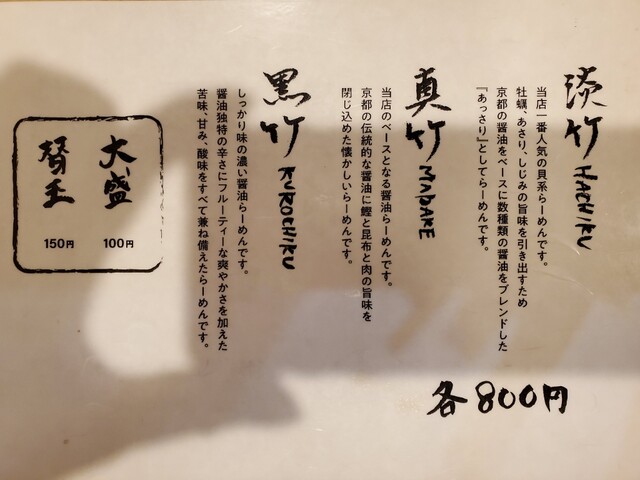 淡竹 HACHIKU
当店一番人気の貝系らーめんです。
牡蠣、あさり、しじみの旨味を引き出すため
京都の醤油をベースに数種類の醤油をブレンドした
『あっさり』としてらーめんです。
真竹 MADAKE
当店のベースとなる醤油らーめんです。
京都の伝統的な醤油に鰹と昆布と肉の旨味を
閉じ込めた懐かしいらーめんです。
黒竹 KUROCHIKU
しっかり味の濃い醤油らーめんです。
醤油独特の辛さにフルーティーな爽やかさを加えた
苦味、甘み、酸味をすべて兼ね備えたらーめんです。
各800円
大盛 100円
替玉 150円